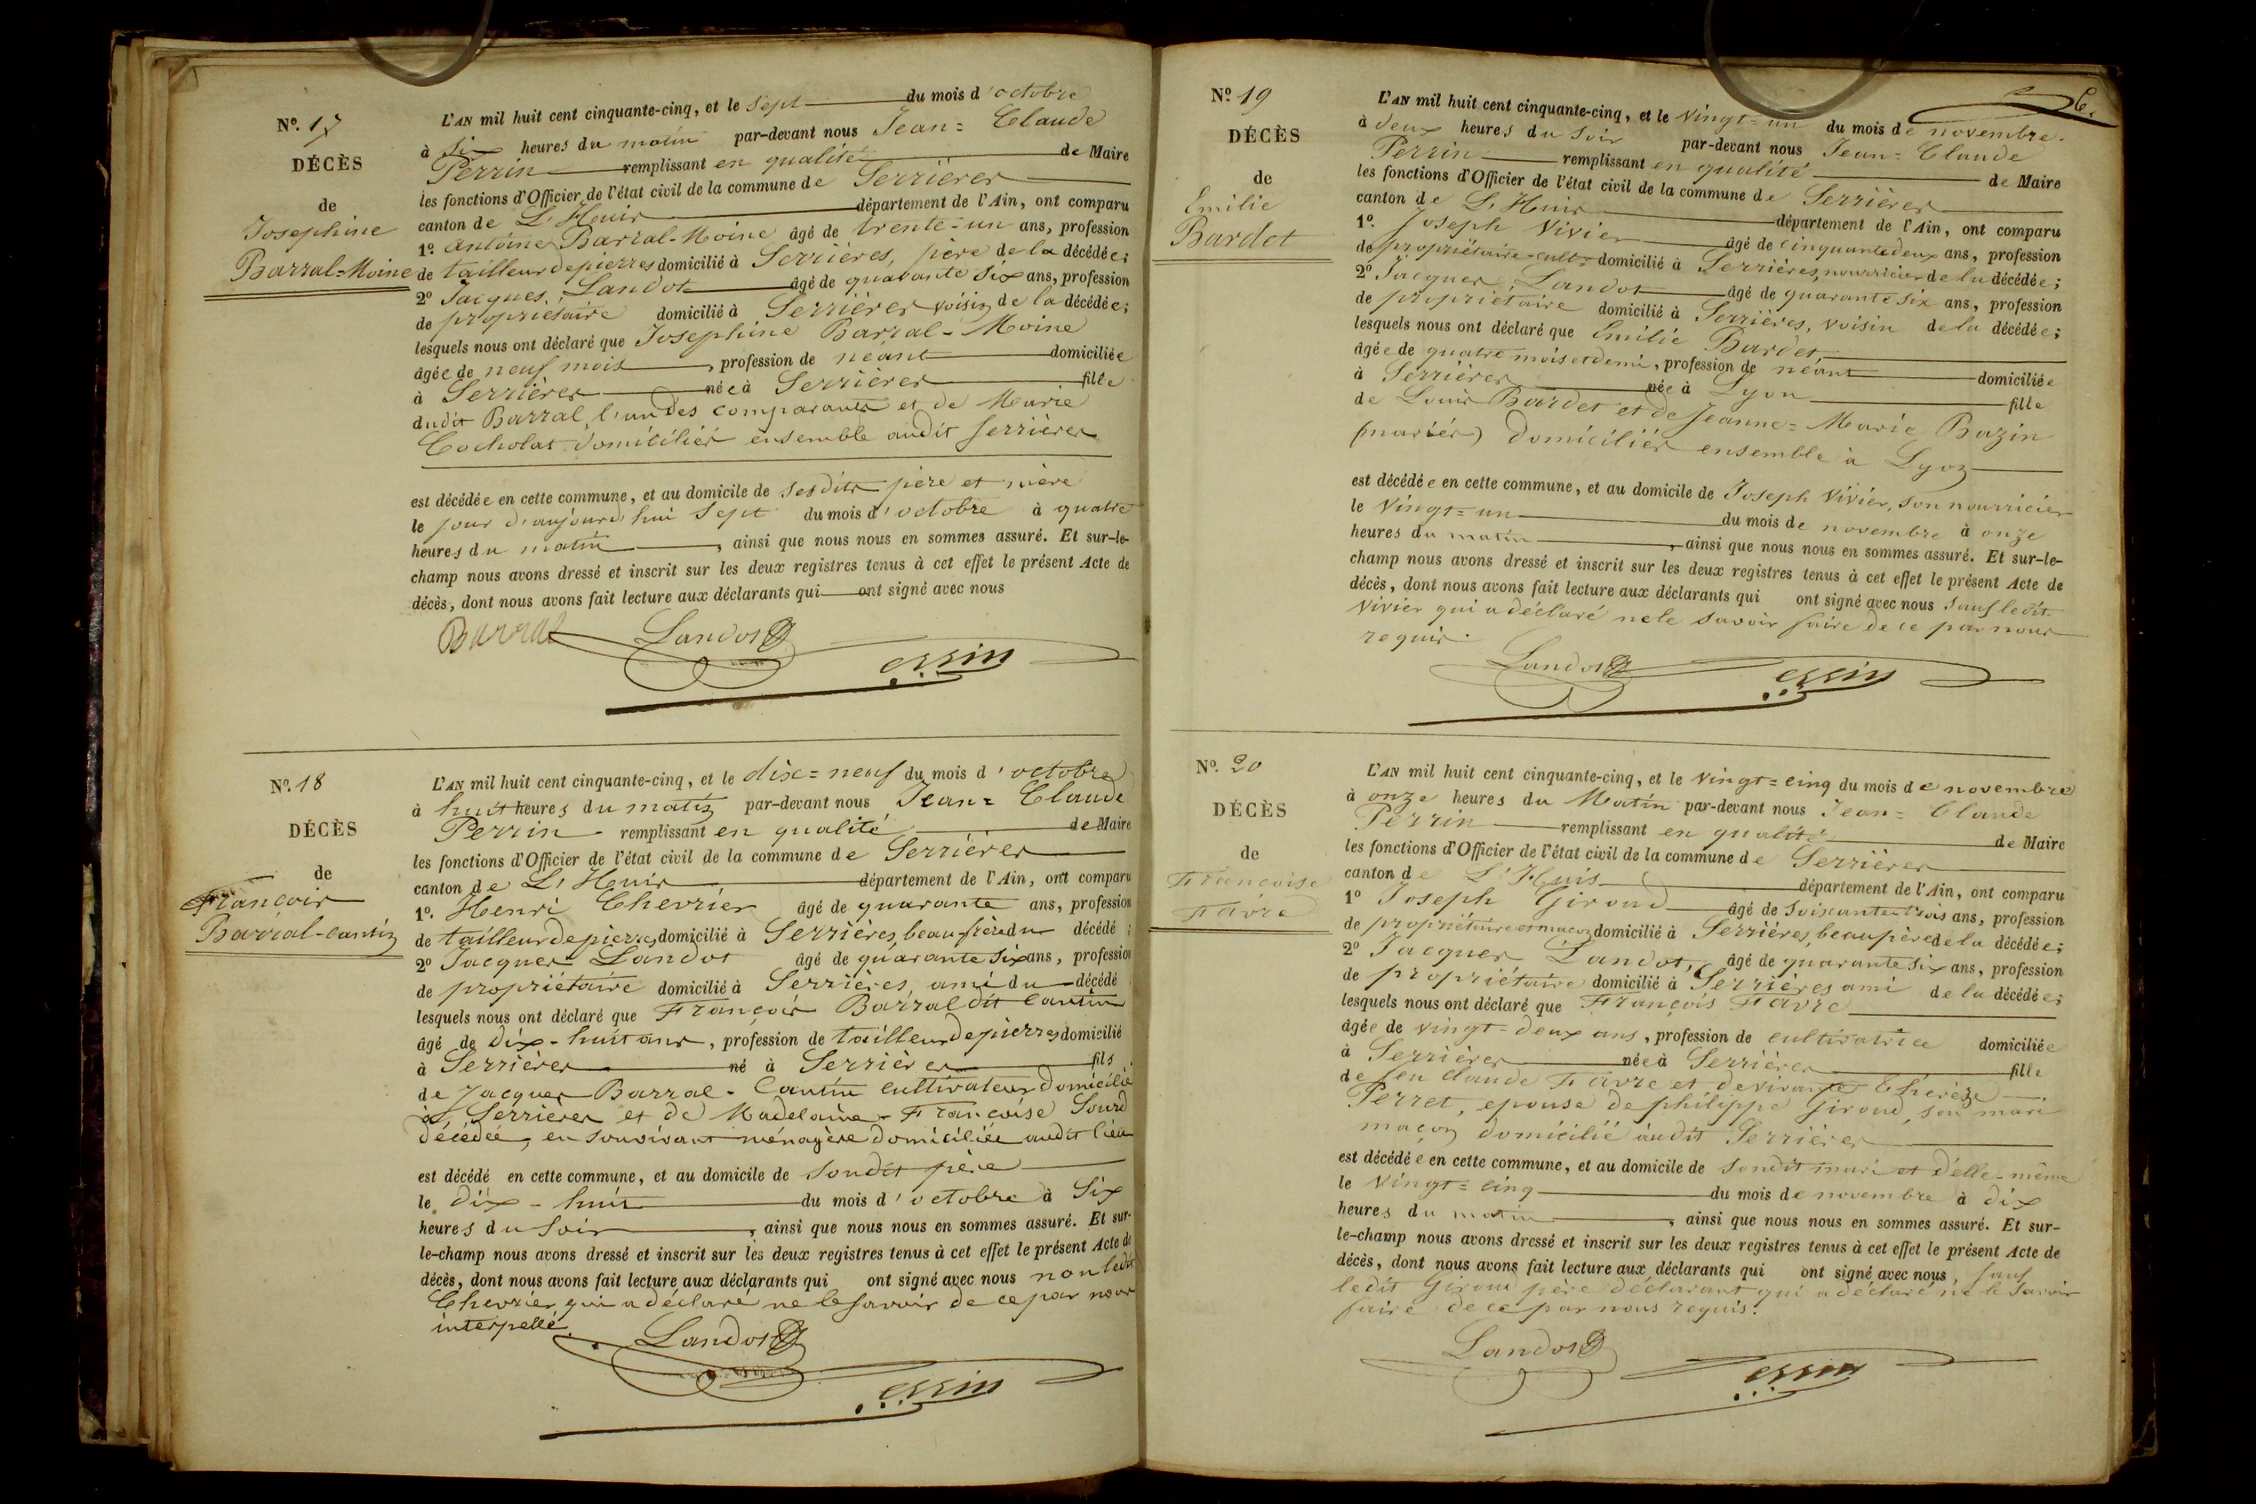 Nº. 17
DÉCÈS
de
Josephine
Barral=Moine
L'AN mil huit cent cinquante-cinq, et le sept du mois d'octobre
à six heures du matin par-devant nous Jean= Claude
Perrin remplissant en qualité de Maire
les fonctions d'Officier de l'état civil de la commune de Serrières
canton de L'Huis département de l'Ain, ont comparu
1º. antoine Barral-Moine âgé de trente-un ans, profession
de tailleur de pierres domicilié à Serrières, père de la décédée;
2º Jacques Landot âgé de quarante six ans, profession
de propriétaire domicilié à Serrières voisin de la décédée;
lesquels nous ont déclaré que Josephine Barral-Moine
âgée de neuf mois, profession de néant domiciliée
à Serrières née à Serrières fille
dudit Barral, l'un des comparants et de Marie
Cocholat domiciliés ensemble audit Serrières
est décédée en cette commune, et au domicile de sesdits père et mère
le jour d'aujourd'hui sept du mois d'octobre à quatre
heures du matin, ainsi que nous nous en sommes assuré. Et sur-le-
champ nous avons dressé et inscrit sur les deux registres tenus à cet effet le présent Acte de
décès, dont nous avons fait lecture aux déclarants qui ont signé avec nous
Barral Landot Perrin
Nº. 18
DÉCÈS
de
François
Barral-cantin
L'AN mil huit cent cinquante-cinq, et le dix=neuf du mois d'octobre
à huit heures du matin par-devant nous Jean= Claude
Perrin remplissant en qualité de Maire
les fonctions d'Officier de l'état civil de la commune de Serrières
canton de L'Huis département de l'Ain, ont comparu
1º. Henri Chevrier âgé de quarante ans, profession
de tailleur de pierres domicilié à Serrières, beau-frère du décédé;
2º Jacques Landot âgé de quarante six ans, profession
de propriétaire domicilié à Serrières, ami du décédé
lesquels nous ont déclaré que François Barral dit Cantin
âgé de dix-huit ans, profession de tailleur de pierres domicilié
à Serrières né à Serrières fils
de Jacques Barral-Cantin cultivateur domicilié
à Serrières et de Madelaine-Françoise Sourd
décédée, en son vivant ménagère domiciliée audit lieu
est décédé en cette commune, et au domicile de sondit père
le dix-huit du mois d'octobre à six
heures du soir, ainsi que nous nous en sommes assuré. Et sur-
le-champ nous avons dressé et inscrit sur les deux registres tenus à cet effet le présent Acte de
décès, dont nous avons fait lecture aux déclarants qui ont signé avec nous non ledit
Chevrier qui a déclaré ne le savoir de ce par nous
interpellé.
Landot Perrin
6.
Nº. 19
DÉCÈS
de
Emilie
Bardet
L'AN mil huit cent cinquante-cinq, et le vingt=un du mois de novembre
à deux heures du soir par-devant nous Jean= Claude
Perrin remplissant en qualité de Maire
les fonctions d'Officier de l'état civil de la commune de Serrières
canton de L'Huis département de l'Ain, ont comparu
1º. Joseph Vivier âgé de cinquante deux ans, profession
de propriétaire-cult= domicilié à Serrières, nourricier de la décédée;
2º Jacques Landot âgé de quarante six ans, profession
de propriétaire domicilié à Serrières, voisin de la décédée;
lesquels nous ont déclaré que Emilie Bardet,
âgée de quatre mois et demi, profession de néant domiciliée
à Serrières née à Lyon fille
de Louis Bardet et de Jeanne=Marie Bazin
(mariés) domiciliés ensemble à Lyon
est décédée en cette commune, et au domicile de Joseph Vivier, son nourricier
le vingt=un du mois de novembre à onze
heures du matin, ainsi que nous nous en sommes assuré. Et sur-le-
champ nous avons dressé et inscrit sur les deux registres tenus à cet effet le présent Acte de
décès, dont nous avons fait lecture aux déclarants qui ont signé avec nous sauf ledit
Vivier qui a déclaré ne le savoir faire de ce par nous
requis.
Landot Perrin
Nº. 20
DÉCÈS
de
Françoise
Favre
L'AN mil huit cent cinquante-cinq, et le vingt=cinq du mois de novembre
à onze heures du Matin par-devant nous Jean= Claude
Perrin remplissant en qualité de Maire
les fonctions d'Officier de l'état civil de la commune de Serrières
canton de L'Huis département de l'Ain, ont comparu
1º Joseph Giroud âgé de soixante trois ans, profession
de propriétaire et maçon domicilié à Serrières, beau père de la décédée;
2º Jacques Landot, âgé de quarante six ans, profession
de propriétaire domicilié à Serrières ami de la décédée;
lesquels nous ont déclaré que François Favre
âgée de vingt-deux ans, profession de cultivatrice domiciliée
à Serrières née à Serrières fille
de feu Claude Favre et de vivante Thérèze
Perret, epouse de philippe Giroud, son mari
maçon domicilié audit Serrières
est décédée en cette commune, et au domicile de sondit mari et d'elle-même
le vingt=cinq du mois de novembre à dix
heures du matin, ainsi que nous nous en sommes assuré. Et sur-
le-champ nous avons dressé et inscrit sur les deux registres tenus à cet effet le présent Acte de
décès, dont nous avons fait lecture aux déclarants qui ont signé avec nous, sauf
ledit Giroud père déclarant qui a déclaré ne le savoir
faire de ce par nous requis.
Landot Perrin